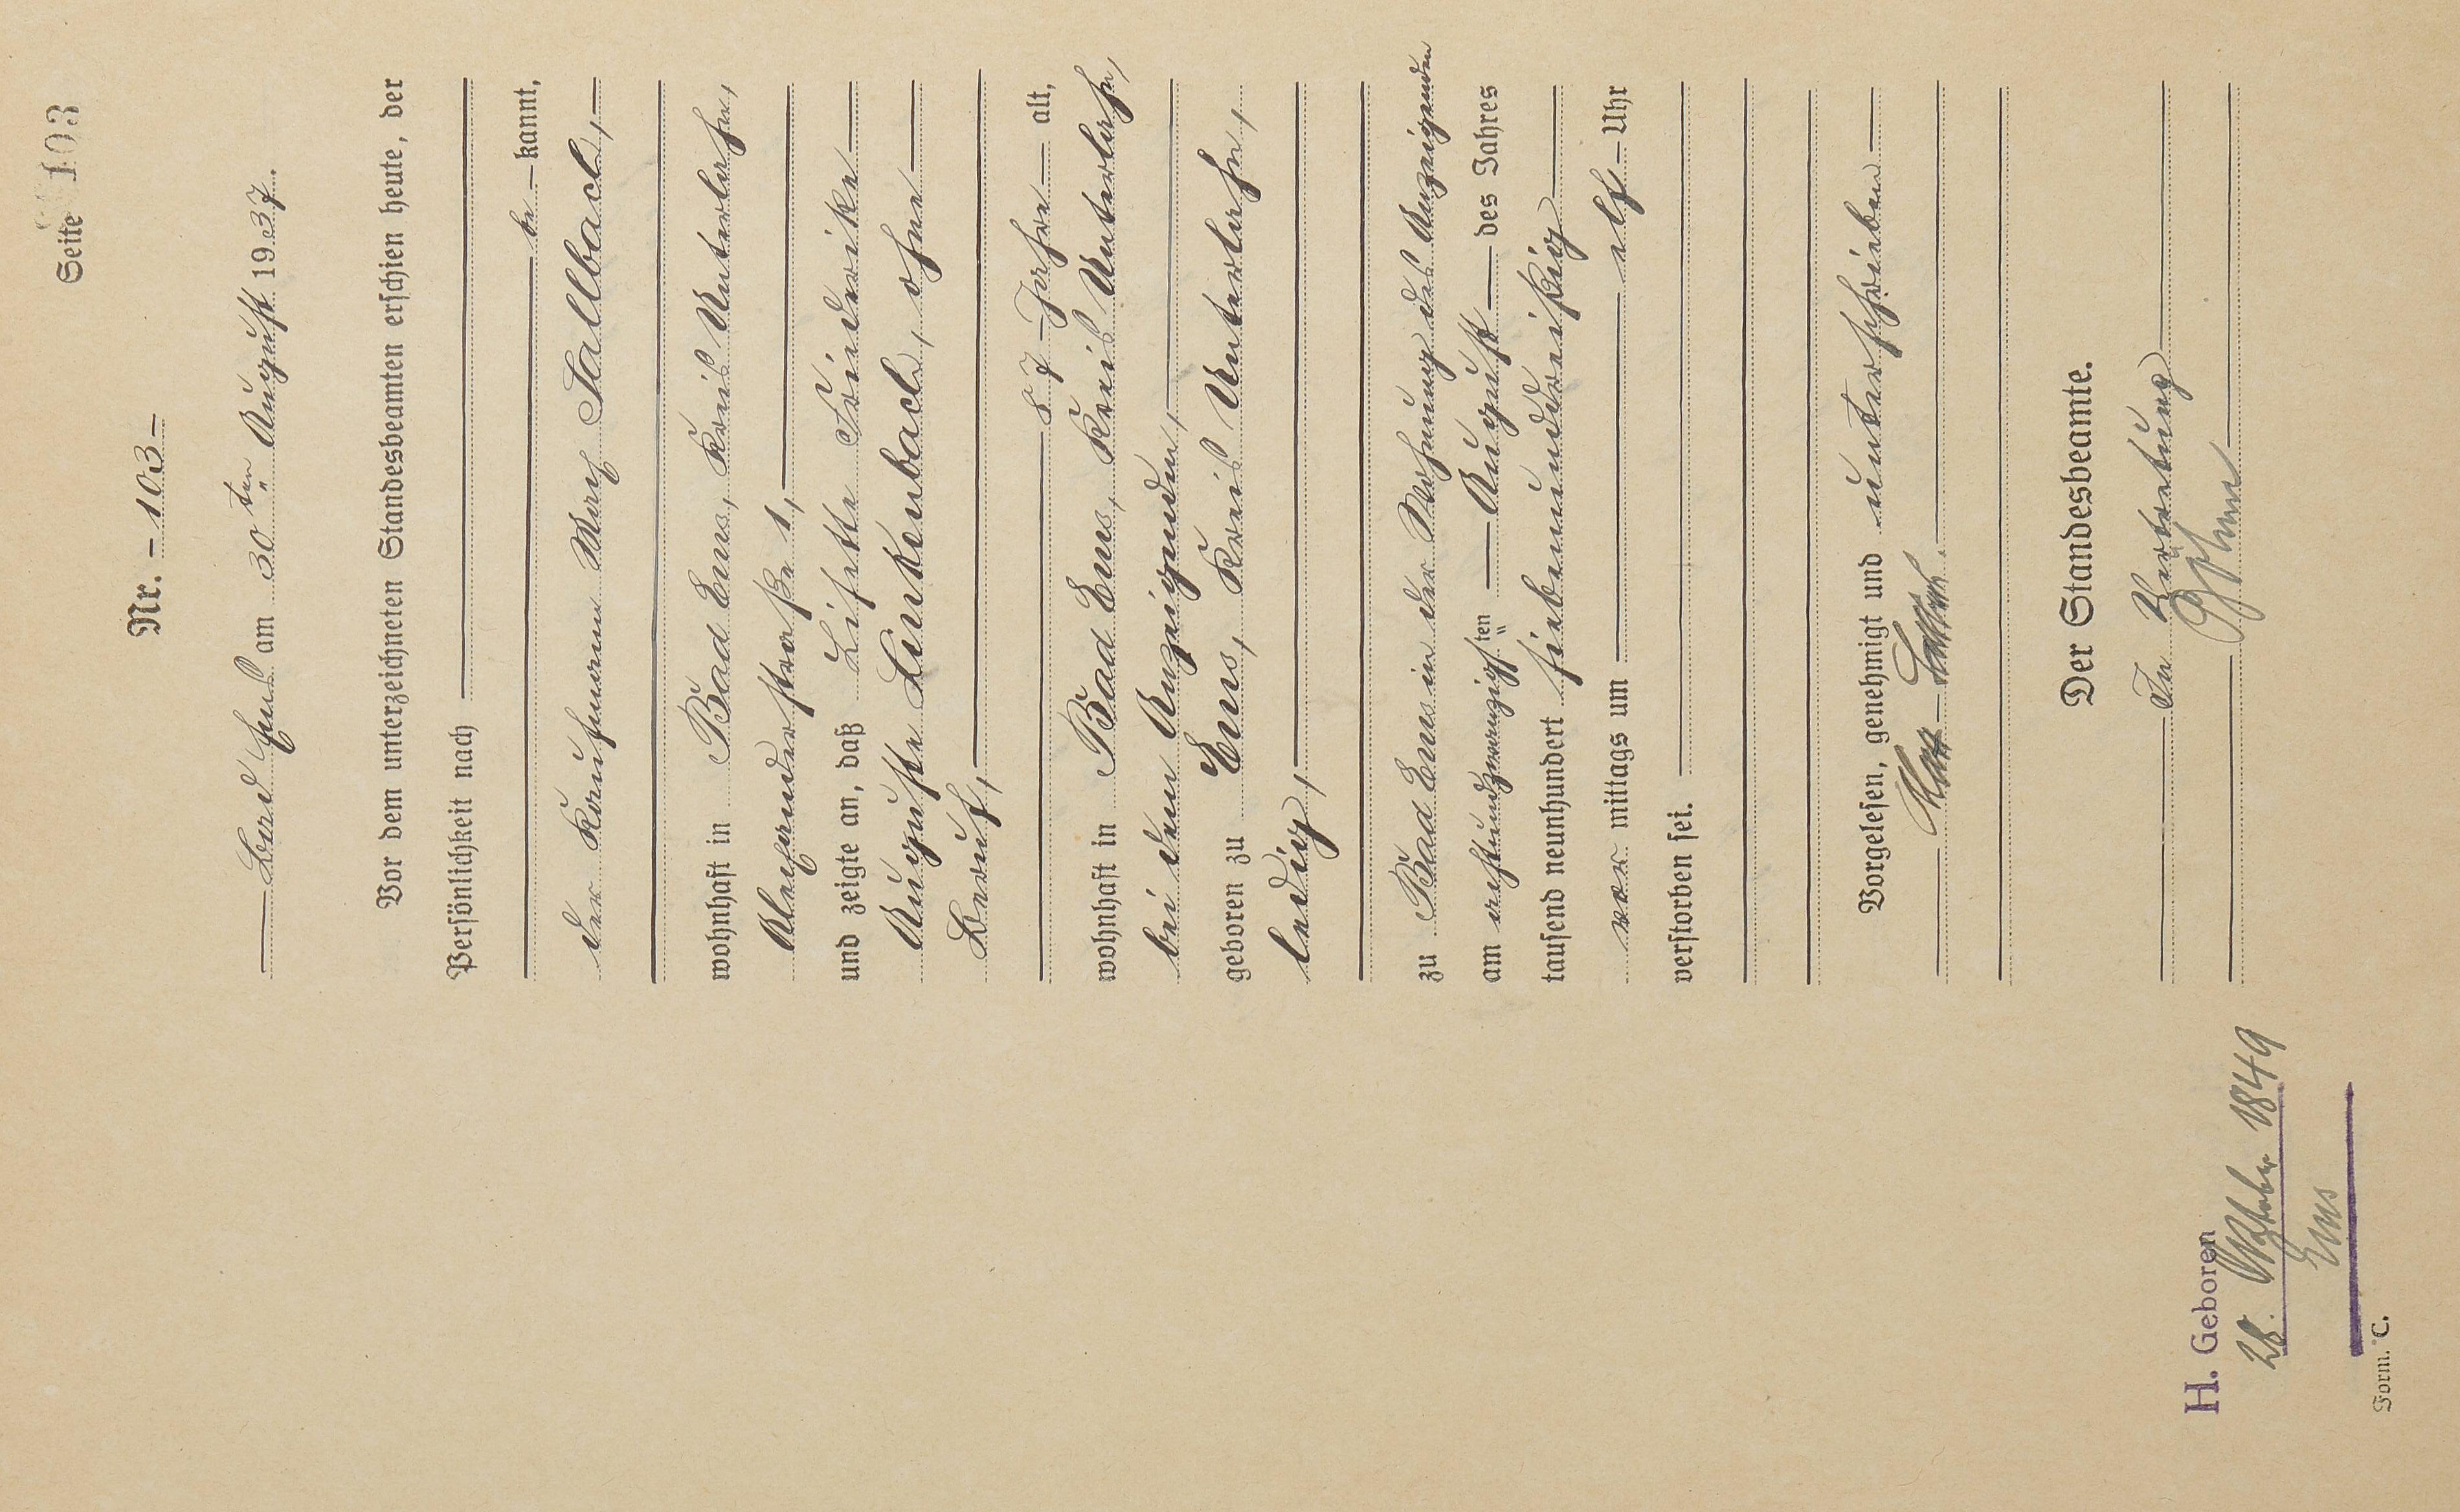 Seite 103
Nr. - 103 -
Bad Ems am 30ten August 1937.
Vor dem unterzeichneten Standesbeamten erschien heute, der
Persönlichkeit nach
be - kannt,
der Kaufmann Max Sallbach,
wohnhaft in Bad Ems, Kreis Unterlahn,
Alexanderstraße 1,
und zeigte an, daß Lisette Friederike
Auguste Linkenbach, ohne
Beruf,
87 Jahre alt,
wohnhaft in Bad Ems, Kreis Unterlahn,
bei dem Anzeigenden,
geboren zu Ems, Kreis Unterlahn,
ledig,
zu Bad Ems in der Wohnung des Anzeigenden
am achtundzwanzigsten August des Jahres
tausend neunhundert siebenunddreißig
vor mittags um elf Uhr
verstorben sei.
Vorgelesen, genehmigt und unterschrieben
Max Sallbach.
Der Standesbeamte.
In Vertretung
H. Geboren
28. Oktober 1849
Ems
Form. C.